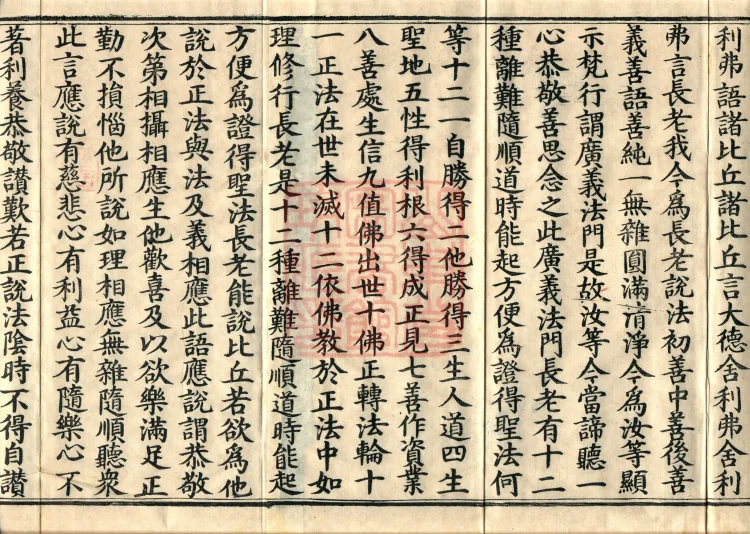 利弗語諸比丘諸比丘言大德舍利弗舍利
弗言長老我今爲長老說法初善中善後善
義善語善純一無雜圓滿清淨今爲汝等顯
示梵行謂廣義法門是故汝等今當諦聽一
心恭敬善思念之此廣義法門長老有十二
種離難隨順道時能起方便爲證得聖法何
等十二一自勝得二他勝得三生人道四生
聖地五性得利根六得成正見七善作資業
八善處生信九值佛出世十佛正轉法輪十
一正法在世未滅十二依佛教於正法中如
理修行長老是十二種離難隨順道時能起
方便爲證得聖法長老能說比丘若欲爲他
說於正法與法及義相應此語應說謂恭敬
次第相攝相應生他歡喜及以欲樂滿足正
勤不損惱他所說如理相應無雜隨順聽衆
此言應說有慈悲心有利益心有隨樂心不
著利養恭敬讚歎若正說法陰時不得自讚